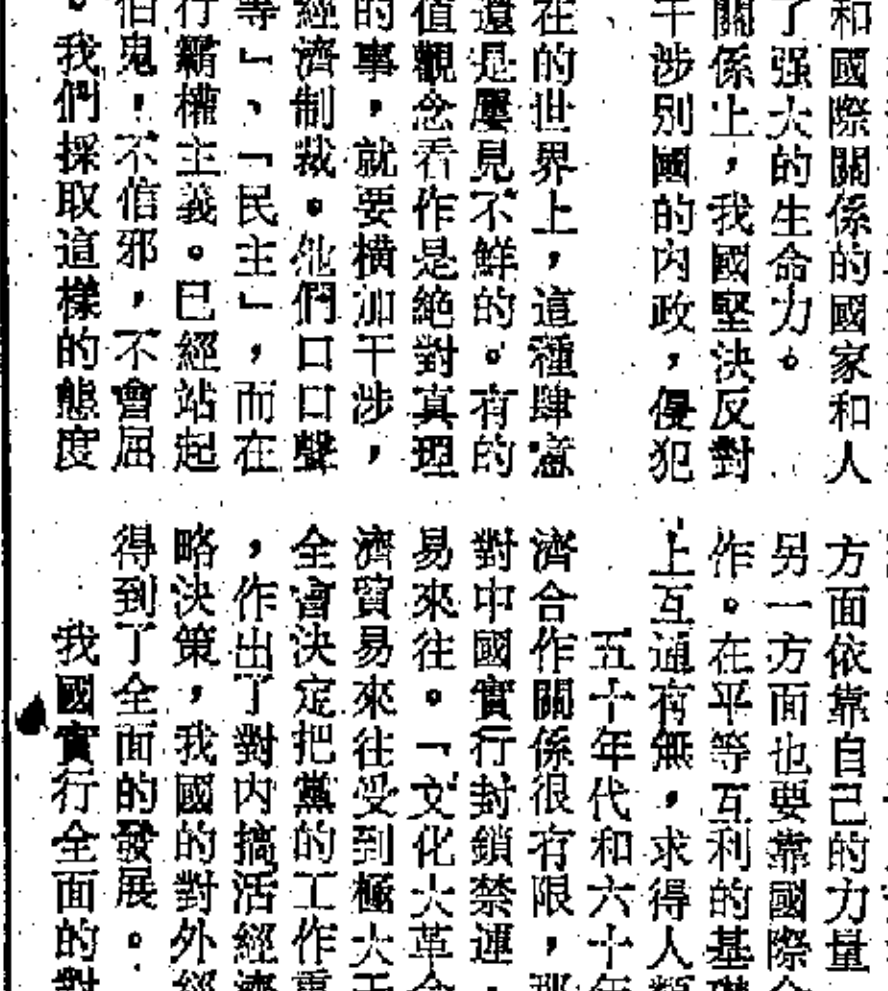 和國際關係的國家和人
了强大的生命力。
關係上，我國堅決反對
干涉別國的內政，侵犯
在的世界上，這種肆意
還是屢見不鮮的。有的
值觀念看作是絶對真理
的事，就要橫加干涉，
經濟制裁。他們口口聲
等」、「民主」，而在
行霸權主義。已經站起
怕鬼！不信邪，不會屈
。我們採取這樣的態度
方面依靠自己的力量
另一方面也要靠國際合
作。在平等互利的基礎
上互通有無，求得人類
五十年代和六十年
濟合作關係很有限，那
對中國實行封鎖禁運，
易來往。「文化大革命
濟貿易來往受到極大干
全會決定把黨的工作重
，作出了對內搞活經濟
略決策，我國的對外經
得到了全面的發展。
我國實行全面的對